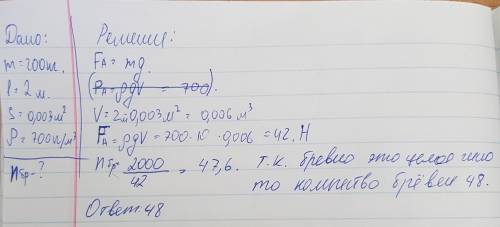 Дано:
m = 200 кг.
l = 2 м.
S = 0,003 м²
ρ = 700 кг/м³
nбр - ?
Решение:
FA = mg.
(PA = ρgV = 700).
V = 2 · 0,003 м² = 0,006 м³
FA = ρgV = 700 · 10 · 0,006 = 42. Н
nбр = 2000/42 = 47,6. т.к. бревно это целое число
то количество брёвен 48.
Ответ 48